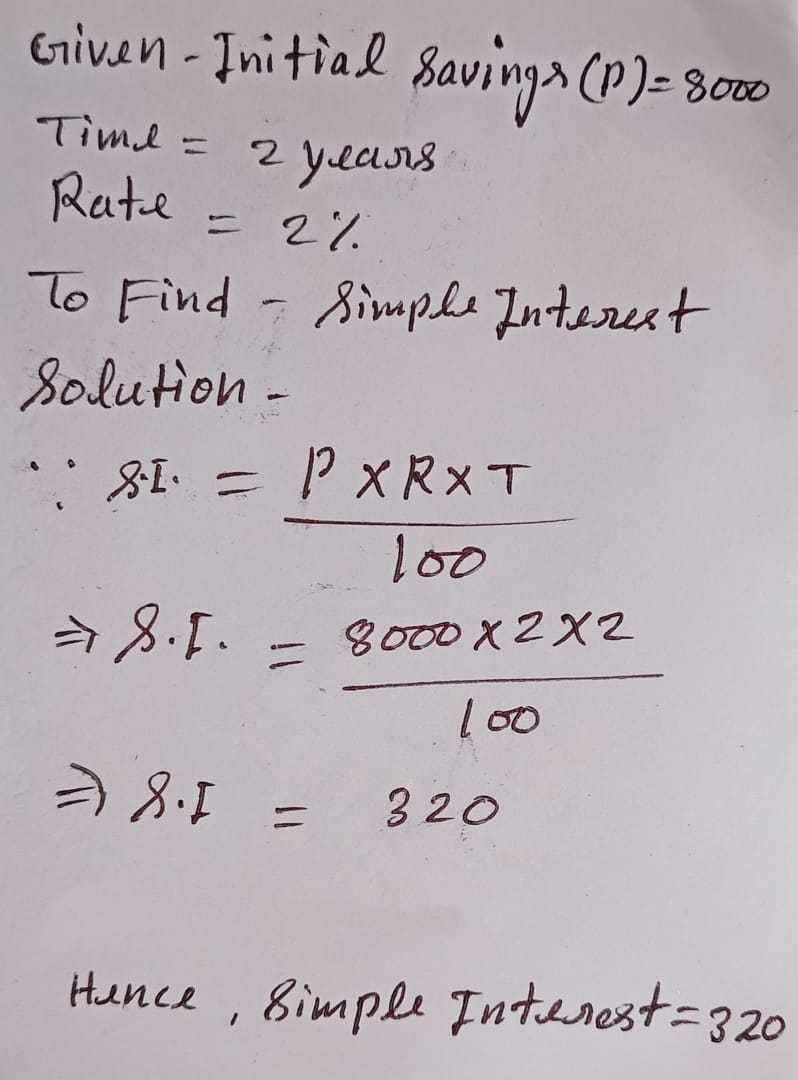 Given - Initial Savings (P) = 8000
Time = 2 years
Rate = 2%
To Find - Simple Interest
Solution -
∵ S.I. = P X R X T
100
⇒ S.I. = 8000 X 2 X 2
100
⇒ S.I = 320
Hence , Simple Interest = 320